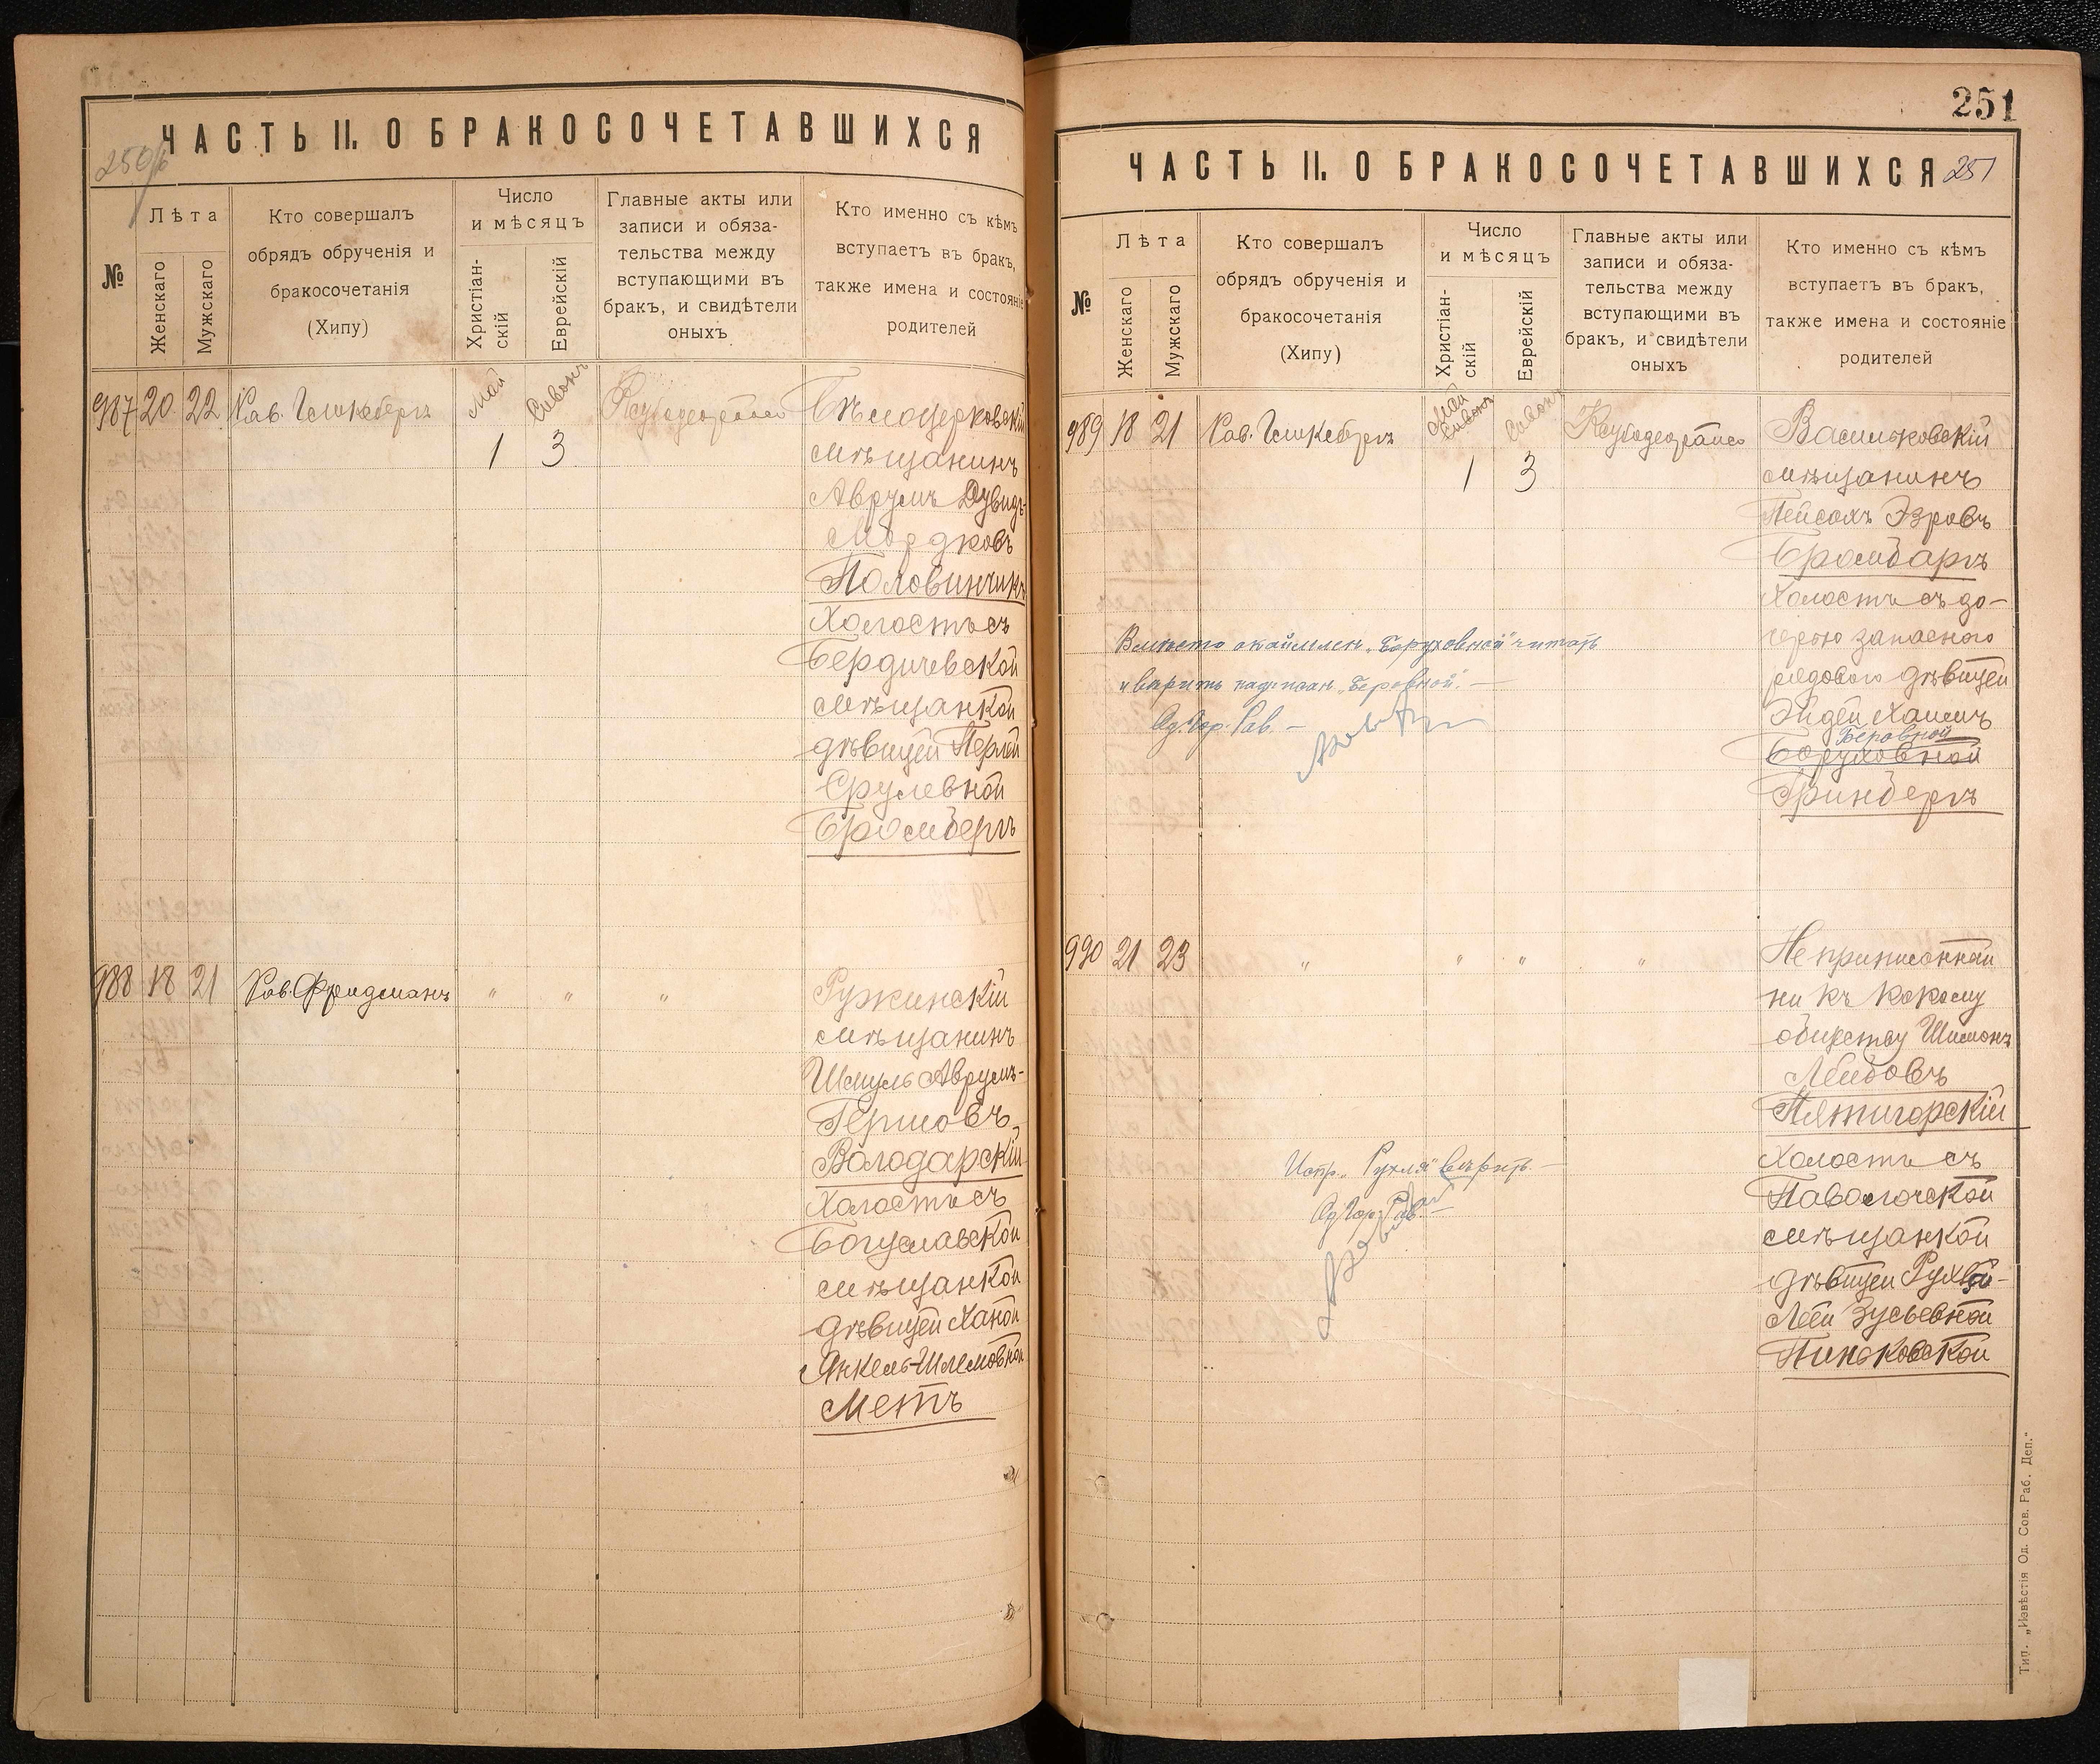 250/б
ЧАСТЬ II. О БРАКОСОЧЕТАВШИХСЯ
№
Лѣта
Женскаго
Мужскаго
Кто совершалъ
обрядъ обрученія и
бракосочетанія
(Хипу)
Число
и мѣсяцъ
Христіан-
скій
Еврейскій
Главные акты или
записи и обяза-
тельства между
вступающими въ
бракъ, и свидѣтели
оныхъ
Кто именно съ кѣмъ
вступаетъ въ бракъ,
также имена и состояніе
родителей
987 20 22 Рав. Май Сивонъ Бѣлоцерковскій
1 3 мѣщанинъ
Аврумъ Дувидъ-
Мордковъ
Половинчикъ
Холостъ съ
Бердичевской
мѣщанкой
дѣвицей Перлей
Срулевной
Бромбергъ
988 18 21 Рав. Фридманъ " " " Ружинскій
мѣщанинъ
Шмуль Аврумъ-
Гершовъ
Володарскій
Холостъ съ
Богуславской
мѣщанкой
дѣвицей Ханой
Янкель-Шлемовной
Метъ
251
ЧАСТЬ II. О БРАКОСОЧЕТАВШИХСЯ 251
№
Лѣта
Женскаго
Мужскаго
Кто совершалъ
обрядъ обрученія и
бракосочетанія
(Хипу)
Число
и мѣсяцъ
Христіан-
скій
Еврейскій
Главные акты или
записи и обяза-
тельства между
вступающими въ
бракъ, и свидѣтели
оныхъ
Кто именно съ кѣмъ
вступаетъ въ бракъ,
также имена и состояніе
родителей
989 18 21 Рав. Май Сивонъ Сивонъ Васильковскій
1 3 мѣщанинъ
Пейсахъ Эзровъ
Бромбаргъ
Холостъ съ до-
черью запасного
рядового дѣвицей
Эйдей Хаимъ
Беровной
Боруховной
Гринбергъ
Вмѣсто "Боруховной" читать
и вѣрить надписан. "Беровной". —
Од. Гор. Рав. —
990 21 23 " " " " Не приписанный
ни къ какому
обществу Шимонъ
Лейбовъ
Пятигорскій
Холостъ съ
Паволочской
мѣщанкой
дѣвицей Рухлей-
Леей Зусьевной
Пиньковской
Испр. "Рухля" вѣрить. —
Од. Гор. Рав. —
Тип. „Извѣстія Од. Сов. Раб. Деп.“